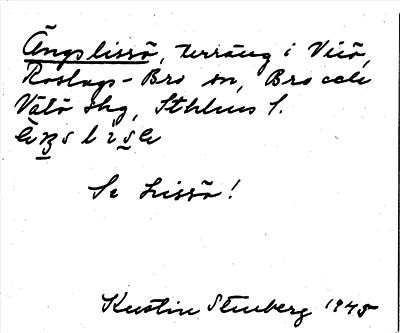 Ängslissö, terräng i Visö,
Roslags-Bro sn, Bro och
Vätö skg, Sthlms l.
Se Lissö!
Kerstin Stenberg 1945